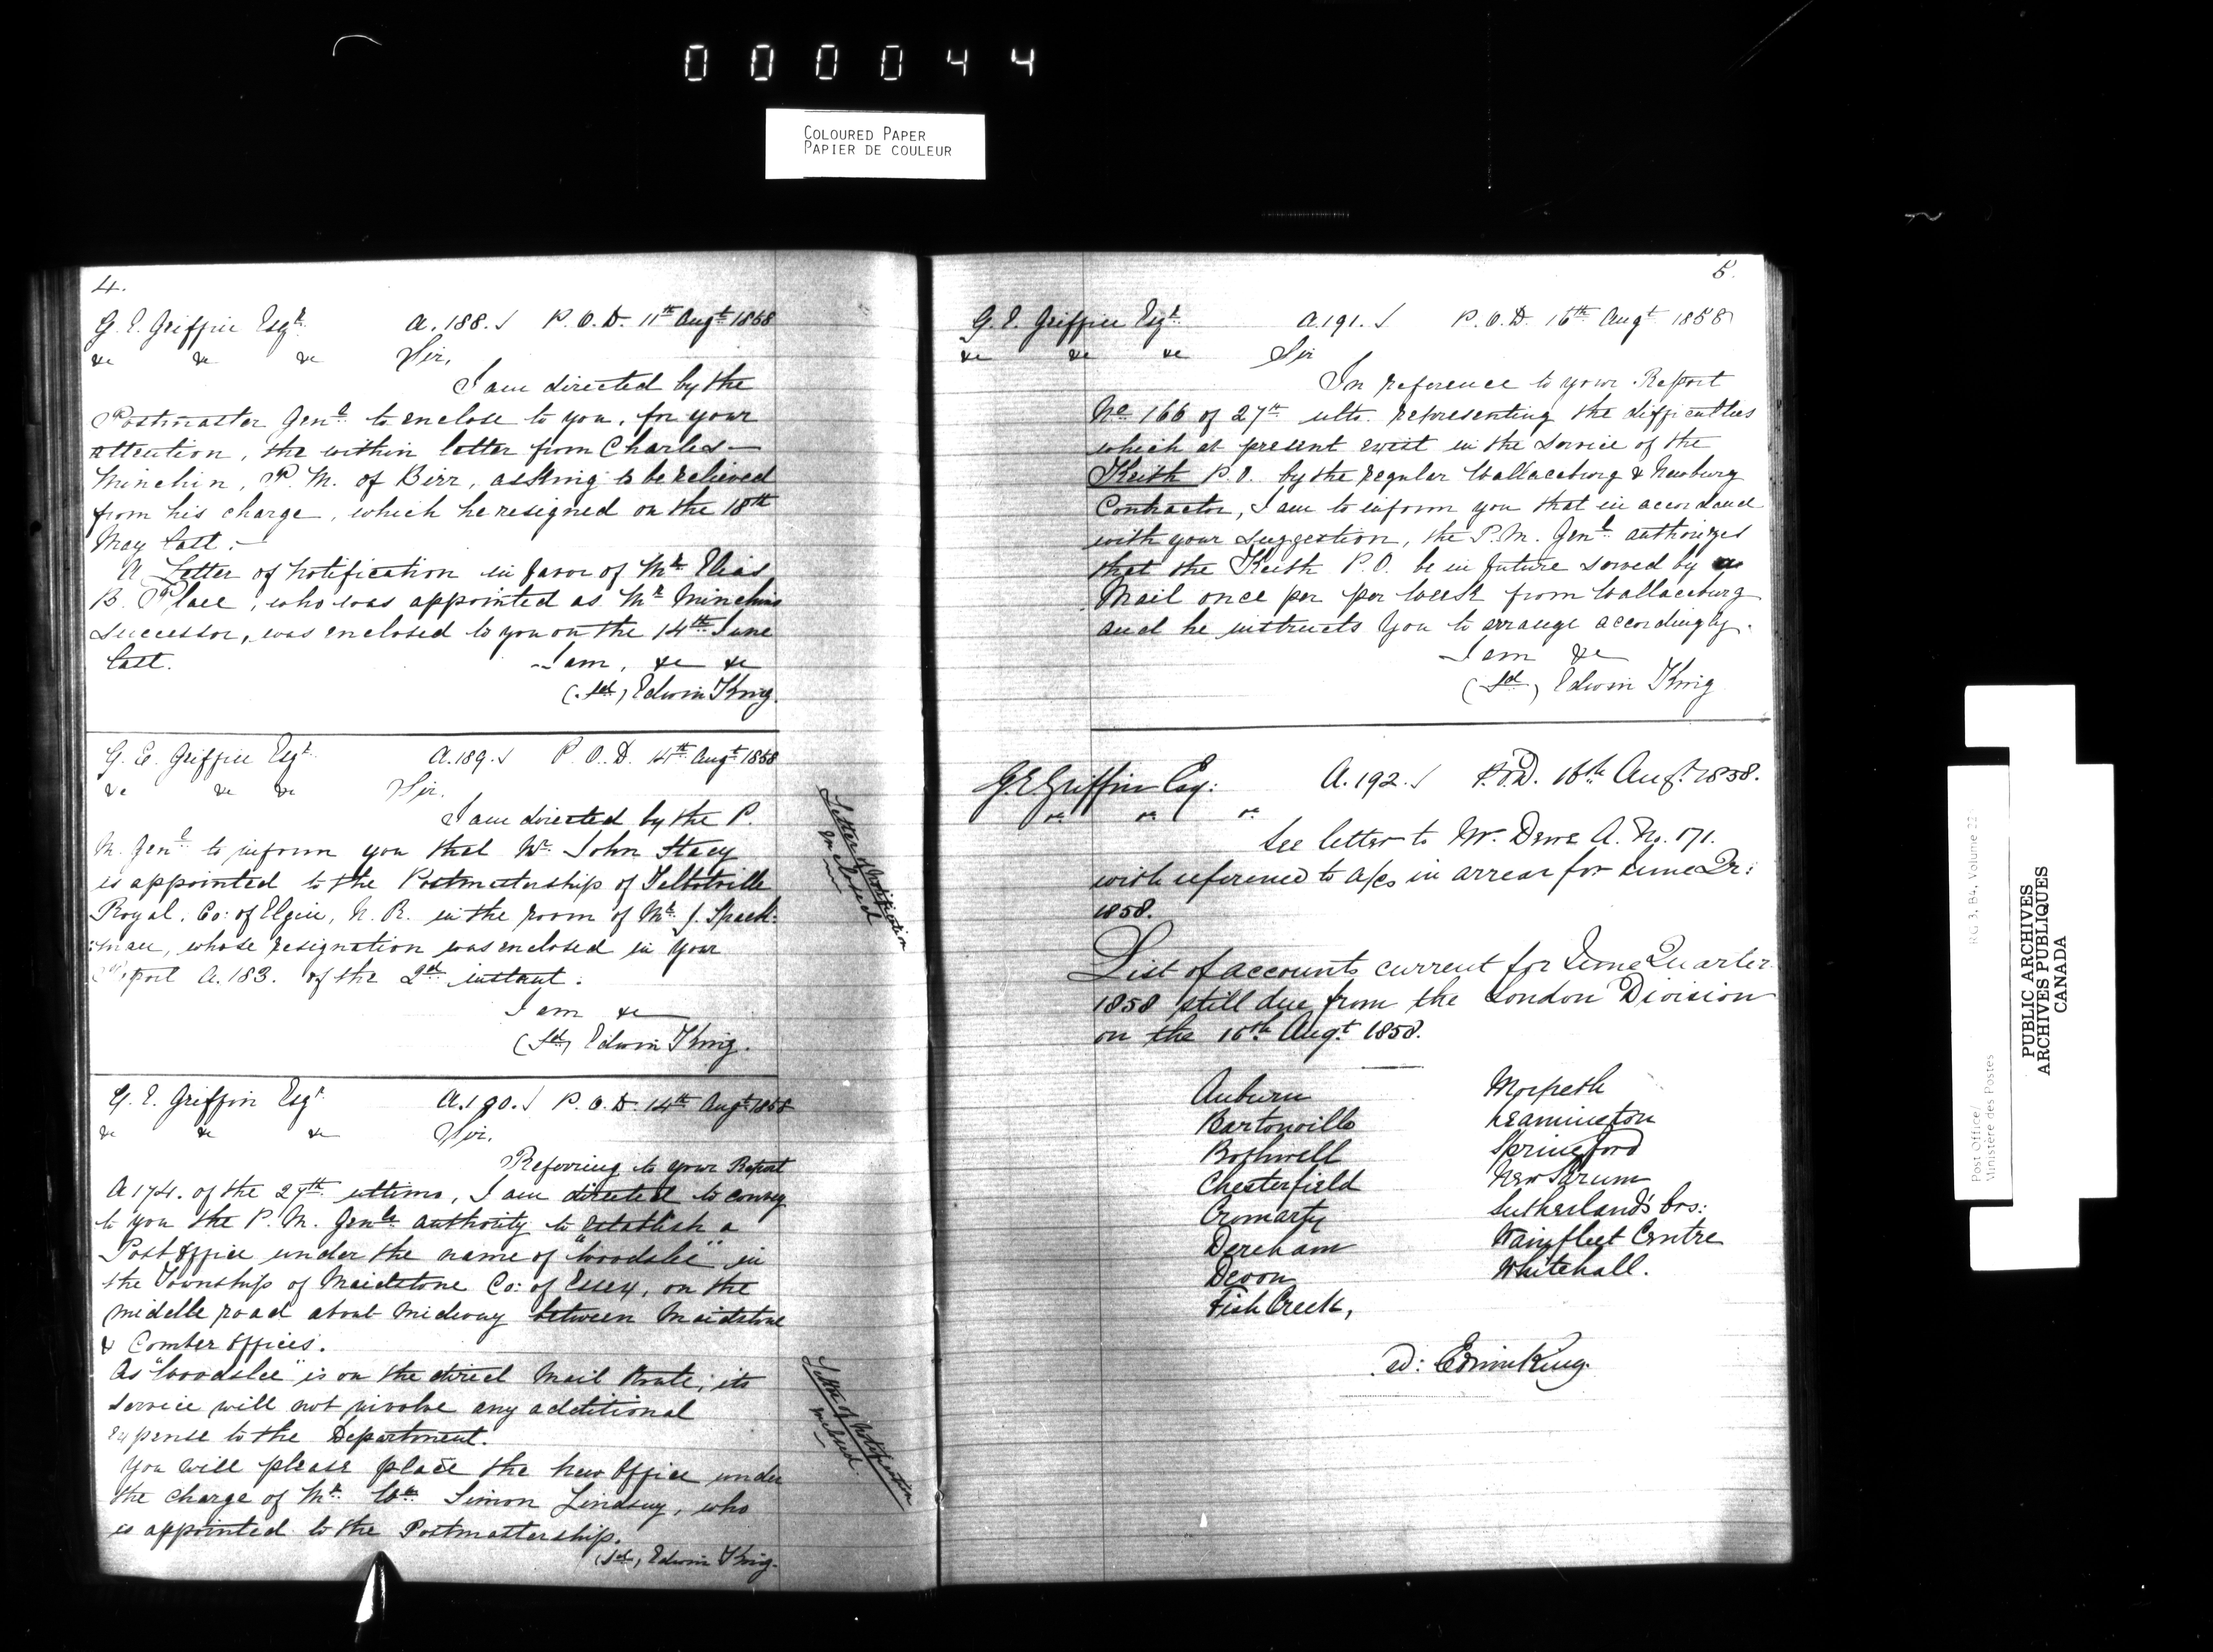 000044
COLOURED PAPER
PAPIER DE COULEUR
4.
G. E. Griffin Esqr. A. 188. P.O.D. 11th Augt 1858
&c &c &c Sir,
I am directed by the
Postmaster Genl. to enclose to you, for your
attention, the within letter from Charles
Minchin, P. M. of Birr, asking to be relieved
from his charge, which he resigned on the 18th
May last.-
A Letter of Notification in favor of Mr. Elias
B. Place, who was appointed as Mr Minchins
successor, was enclosed to you on the 14th June
last. I am, &c &c
(sd) Edwin King.
G. E. Griffin Esqr. A. 189. P.O.D. 14th Augt 1858
&c &c &c Sir.
I am directed by the P.
M. Genl. to inform you that Mr. John Stacy
is appointed to the Postmastership of Talbotville
Royal, Co: of Elgin, N. R. in the room of Mr. J. Spack:
:man, whose resignation was enclosed in your
Report A. 183. of the 2nd instant.
I am &c
(sd) Edwin King.
Letter of Notification
enclosed
G. E. Griffin Esqr. A. 190. P.O.D. 14th Augt 1858
&c &c &c Sir,
Referring to your Report
A 174. of the 27th ultimo, I am directed to convey
to you the P. M. Genls. authority to establish a
Post Office under the name of "Woodslee" in
the Township of Maidstone Co: of Essex, on the
middle road about midway between Maidstone
& Comber Offices.
As "Woodslee" is on the direct Mail Route, its
service will not involve any additional
expense to the Department.
You will please place the new Office under
the charge of Mr. Wm. Simon Lindsay, who
is appointed to the Postmastership.
(sd) Edwin King.
Letter of Notification
enclosed.
5.
G. E. Griffin Esqr. A. 191. P.O.D. 16th Augt 1858
&c &c &c Sir
In reference to your Report
No. 166 of 27th ulto. representing the difficulties
which at present exist in the service of the
Keith P.O. by the regular Wallaceburg & Newburg
Contractor, I am to inform you that in accordance
with your suggestion, the P. M. Genl. authorizes
that the Keith P.O. be in future served by a
Mail once per per Week from Wallaceburg
and he instructs You to arrange accordingly.
I am &c
(sd) Edwin King
G. E. Griffin Esq: A. 192. P.O.D. 16th Augt. 1858.
&c &c &c
See letter to Mr. Dewe A. No. 171.
with reference to a/cs in arrear for June Qr:
1858.
List of accounts current for June Quarter
1858 still due from the London Division
on the 16th Augt 1858.
Auburn Morpeth
Bartonville Leamington
Bothwell Springford
Chesterfield New Sarum
Cromarty Sutherland's Crs:
Dereham Wainfleet Centre
Devon Whitehall.
Fish Creek,
sd: Edwin King.
Post Office/
Ministère des Postes
RG 3, B4, Volume 23
PUBLIC ARCHIVES
ARCHIVES PUBLIQUES
CANADA